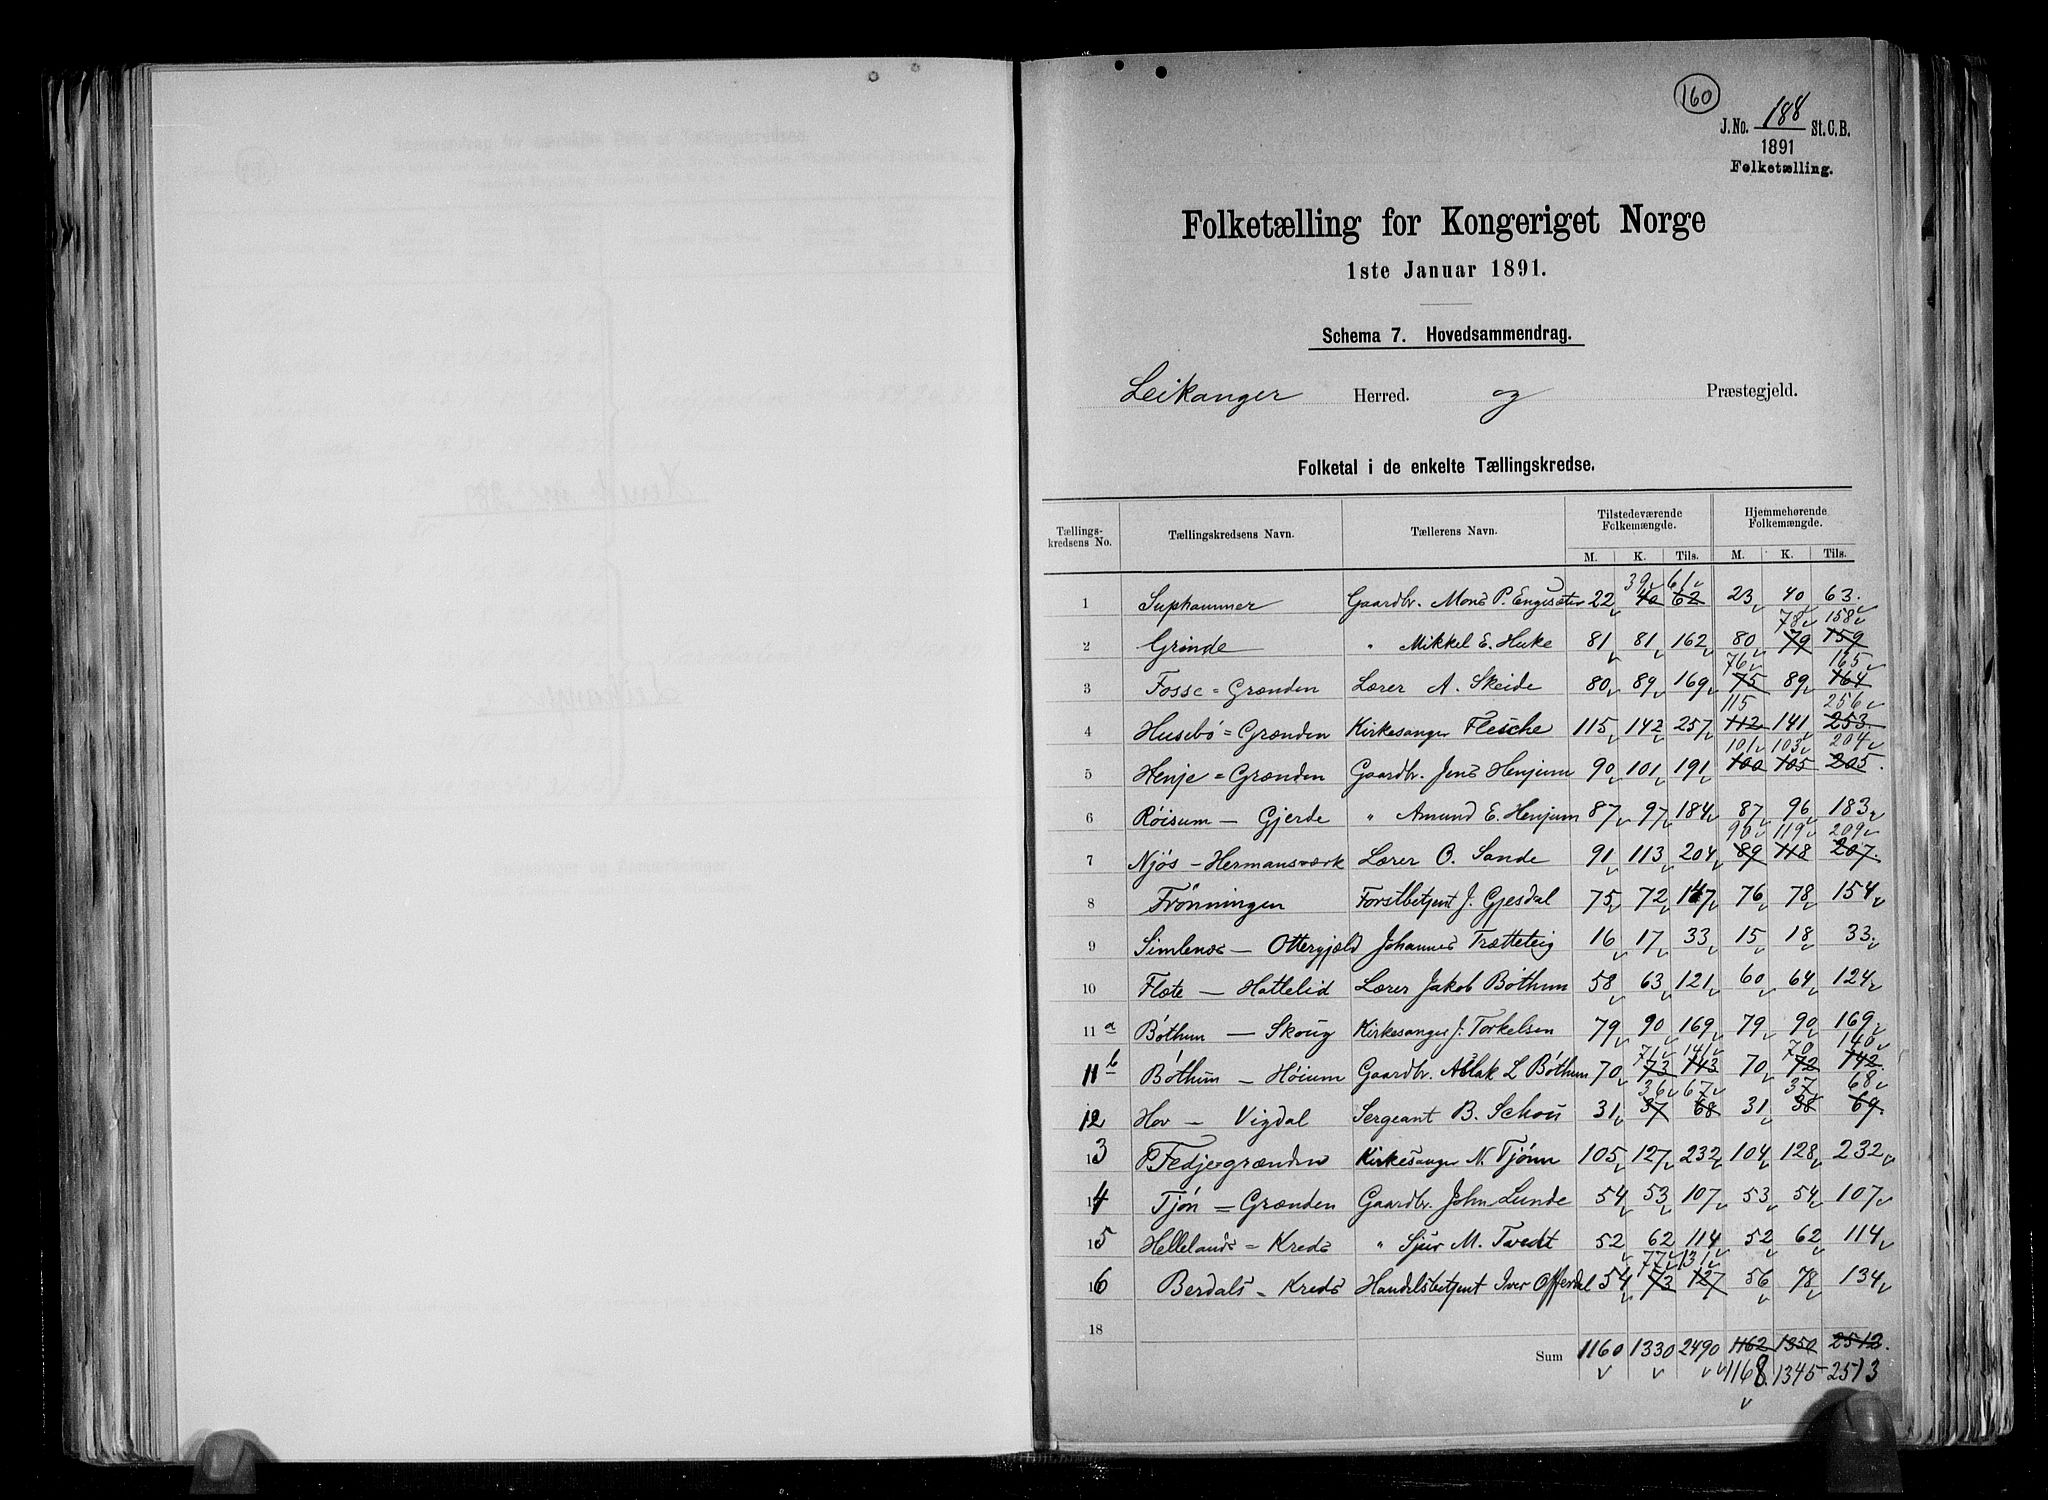 160
J.No. 188 St.C.B.
1891
Folketælling.
Folketælling for Kongeriget Norge
1ste Januar 1891.
Schema 7. Hovedsammendrag.
Leikanger Herred. og Præstegjeld.
Folketal i de enkelte Tællingskredse.
Tællings-kredsens No. Tællingskredsens Navn. Tællerens Navn. Tilstedeværende Folkemængde. Hjemmehørende Folkemængde.
M. K. Tils. M. K. Tils.
39 61
1 Suphammer Gaardbr. Mons P. 22 40 62 23 40 63
78 158
2 Grinde " Mikkel E. Huke 81 81 162 80 79 159
76 165
3 Fosse = Grænden Lærer A. Skeide 80 89 169 75 89 164
115 256
4 Husebö = Grænden Kirkesanger Flesche 115 142 257 112 141 253
101 103 204
5 Henje = Grænden Gaardbr. Jens Henjum 90 101 191 100 105 205
6 Röisum — Gjerde " Amund E. Henjum 87 97 184 87 96 183
90 119 209
7 Njös — Hermansværk Lærer O. Sande 91 113 204 89 118 207
8 Frönningen Forstbetjent J. Gjesdal 75 72 147 76 78 154
9 Simlenæs — Ottergjæld Johannes Trætteteig 16 17 33 15 18 33
10 Flete — Hattelid Lærer Jakob Böthum 58 63 121 60 64 124
11 a Böthum — Skoug Kirkesanger J. Torkelsen 79 90 169 79 90 169
71 141 70 140
11 b Böthum — Höium Gaardbr. Aslak L Böthum 70 73 143 70 72 142
36 67 37 68
12 Hov — Vigdal Sergeant B. Schou 31 37 68 31 38 69
13 Fedje-grænden Kirkesanger N. Tjönn 105 127 232 104 128 232
14 Tjön = Grænden Gaardbr. John Lunde 54 53 107 53 54 107
15 Hellelands = Kreds " Sjur M. Tvedt 52 62 114 52 62 114
77 131
16 Berdals = Kreds Handelsbetjent Iver Offerdal 54 73 127 56 78 134
18
Sum 1160 1330 2490 1162 1350 2512
1168 1345 2513